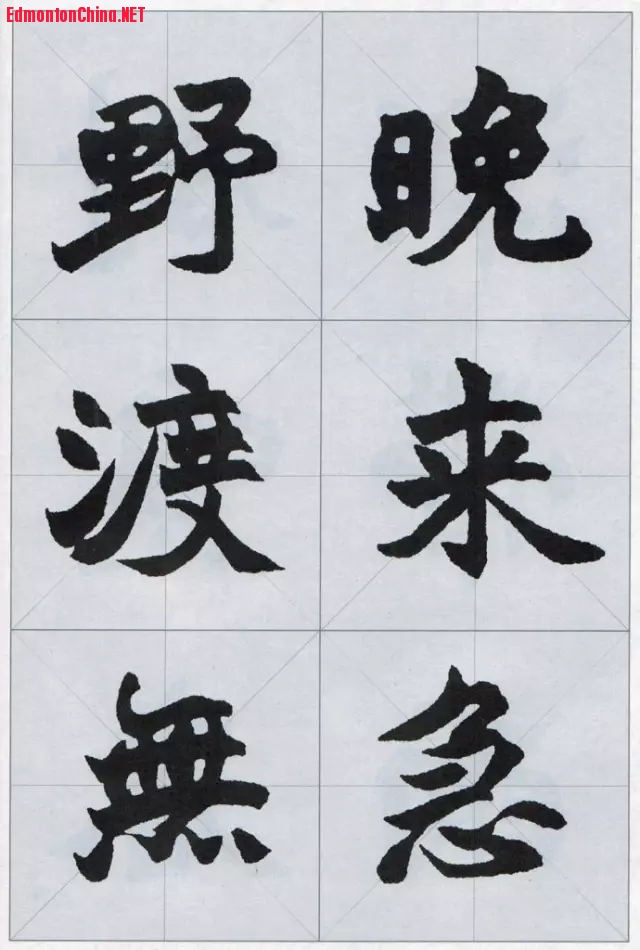 EdmontonChina.NET
晚来急
野渡無